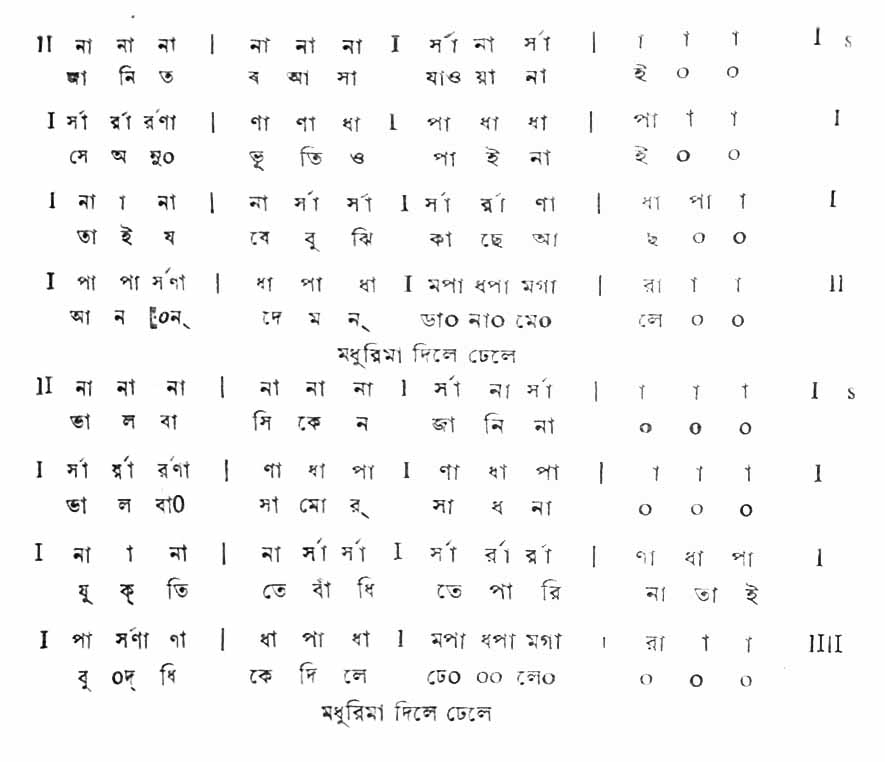 II না না না | না না না I র্সা না র্সা | া া া I s
জা নি ত ব আ সা যাও য়া না ই ০ ০
I র্সা র্রা র্রণা | ণা ণা ধা I পা ধা ধা | পা া া I
সে অ নু০ ভূ তি ও পা ই না ই ০ ০
I না া না | না র্সা র্সা I র্সা র্রা ণা | ধা পা া I
তা ই য বে বু ঝি কা ছে আ ছ ০ ০
I পা পা র্সণা | ধা পা ধা I মপা ধপা মগা | রা া া II
আ ন ০ন্ দে ম ন্ ডা০ না০ মে০ লে ০ ০
মধুরিমা দিলে ঢেলে
II না না না | না না না I র্সা না র্সা | া া া I s
ভা ল বা সি কে ন জা নি না ০ ০ ০
I র্সা র্রা র্রণা | ণা ধা পা I ণা ধা পা | া া া I
ভা ল বা০ সা মো র্ সা ধ না ০ ০ ০
I না া না | না র্সা র্সা I র্সা র্রা র্রা | ণা ধা পা I
যু ক্ তি তে বাঁ ধি তে পা রি না তা ই
I পা র্সণা ণা | ধা পা ধা I মপা ধপা মগা | রা া া IIII
বু ০দ্ ধি কে দি লে ঢে০ ০০ লে০ ০ ০ ০
মধুরিমা দিলে ঢেলে